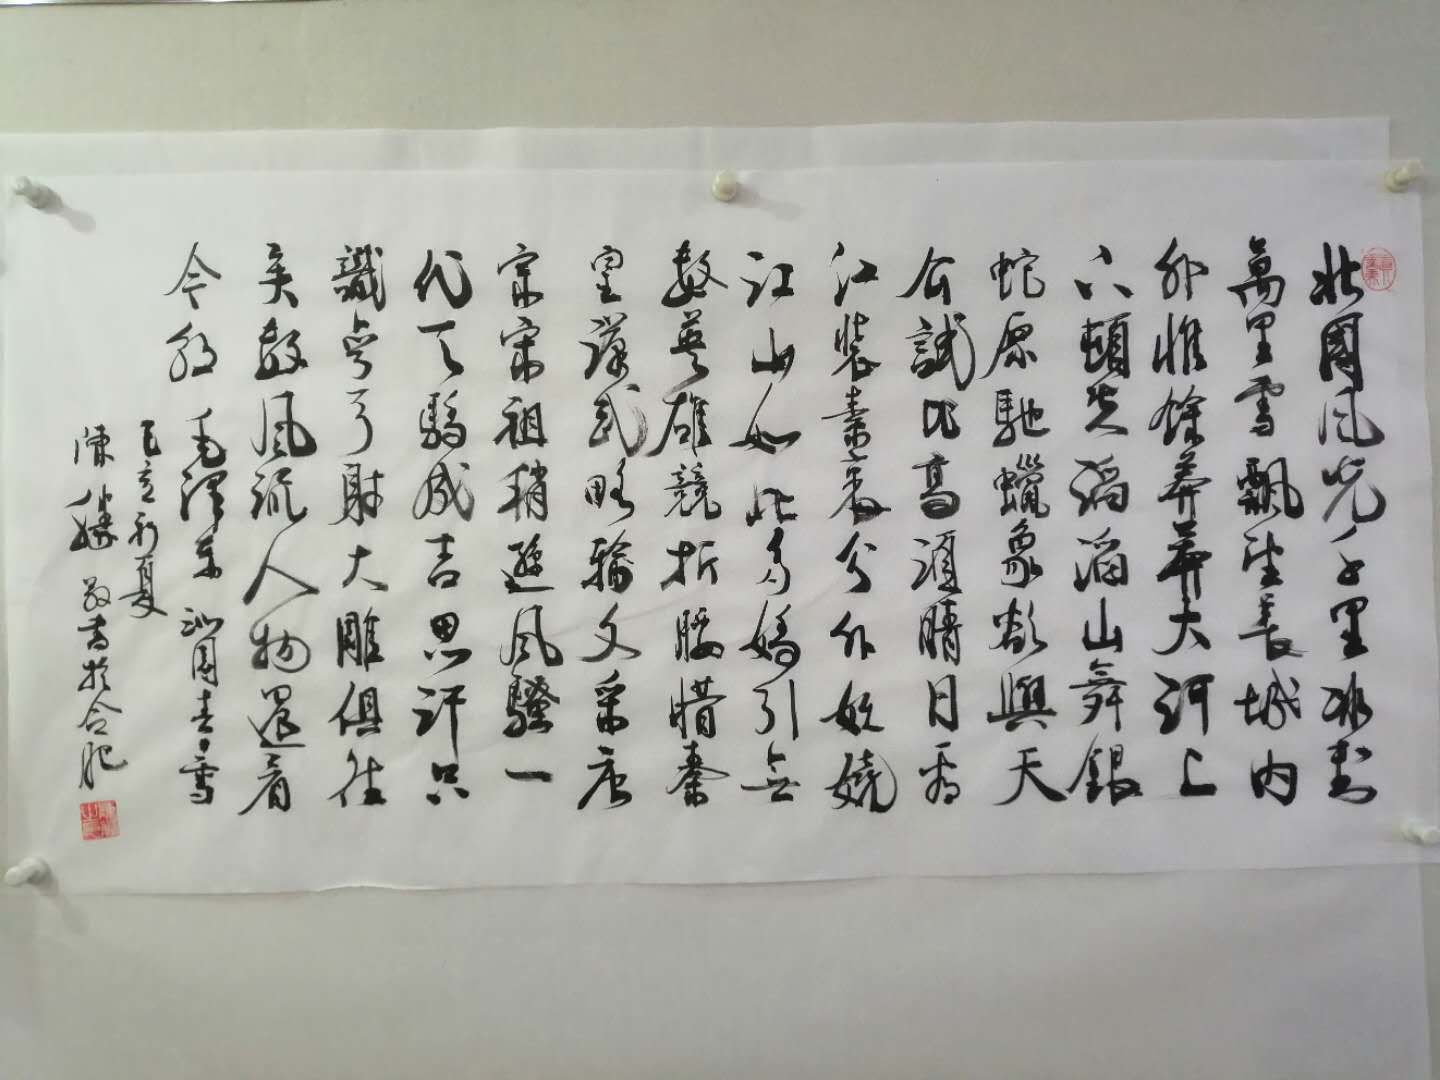 北國風光千里冰封
萬里雪飄望長城內
外惟餘莽莽大河上
下頓失滔滔山舞銀
蛇原馳蠟象欲與天
公試比高須晴日看
紅裝素裹分外妖嬈
江山如此多嬌引無
數英雄競折腰惜秦
皇漢武略輸文采唐
宗宋祖稍遜風騷一
代天驕成吉思汗只
識彎弓射大雕俱往
矣數風流人物還看
今朝 毛澤東 沁園春雪
己亥初夏
陳勝敬書於合肥